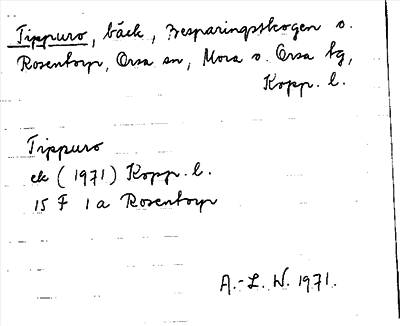 Tippuro, bäck, Besparingsskogen o.
Rosentorp, Orsa sn, Mora o. Orsa tg,
Kopp. l.
Tippuro
ek (1971) Kopp. l.
15 F 1 a Rosentorp
A.-L. W. 1971.